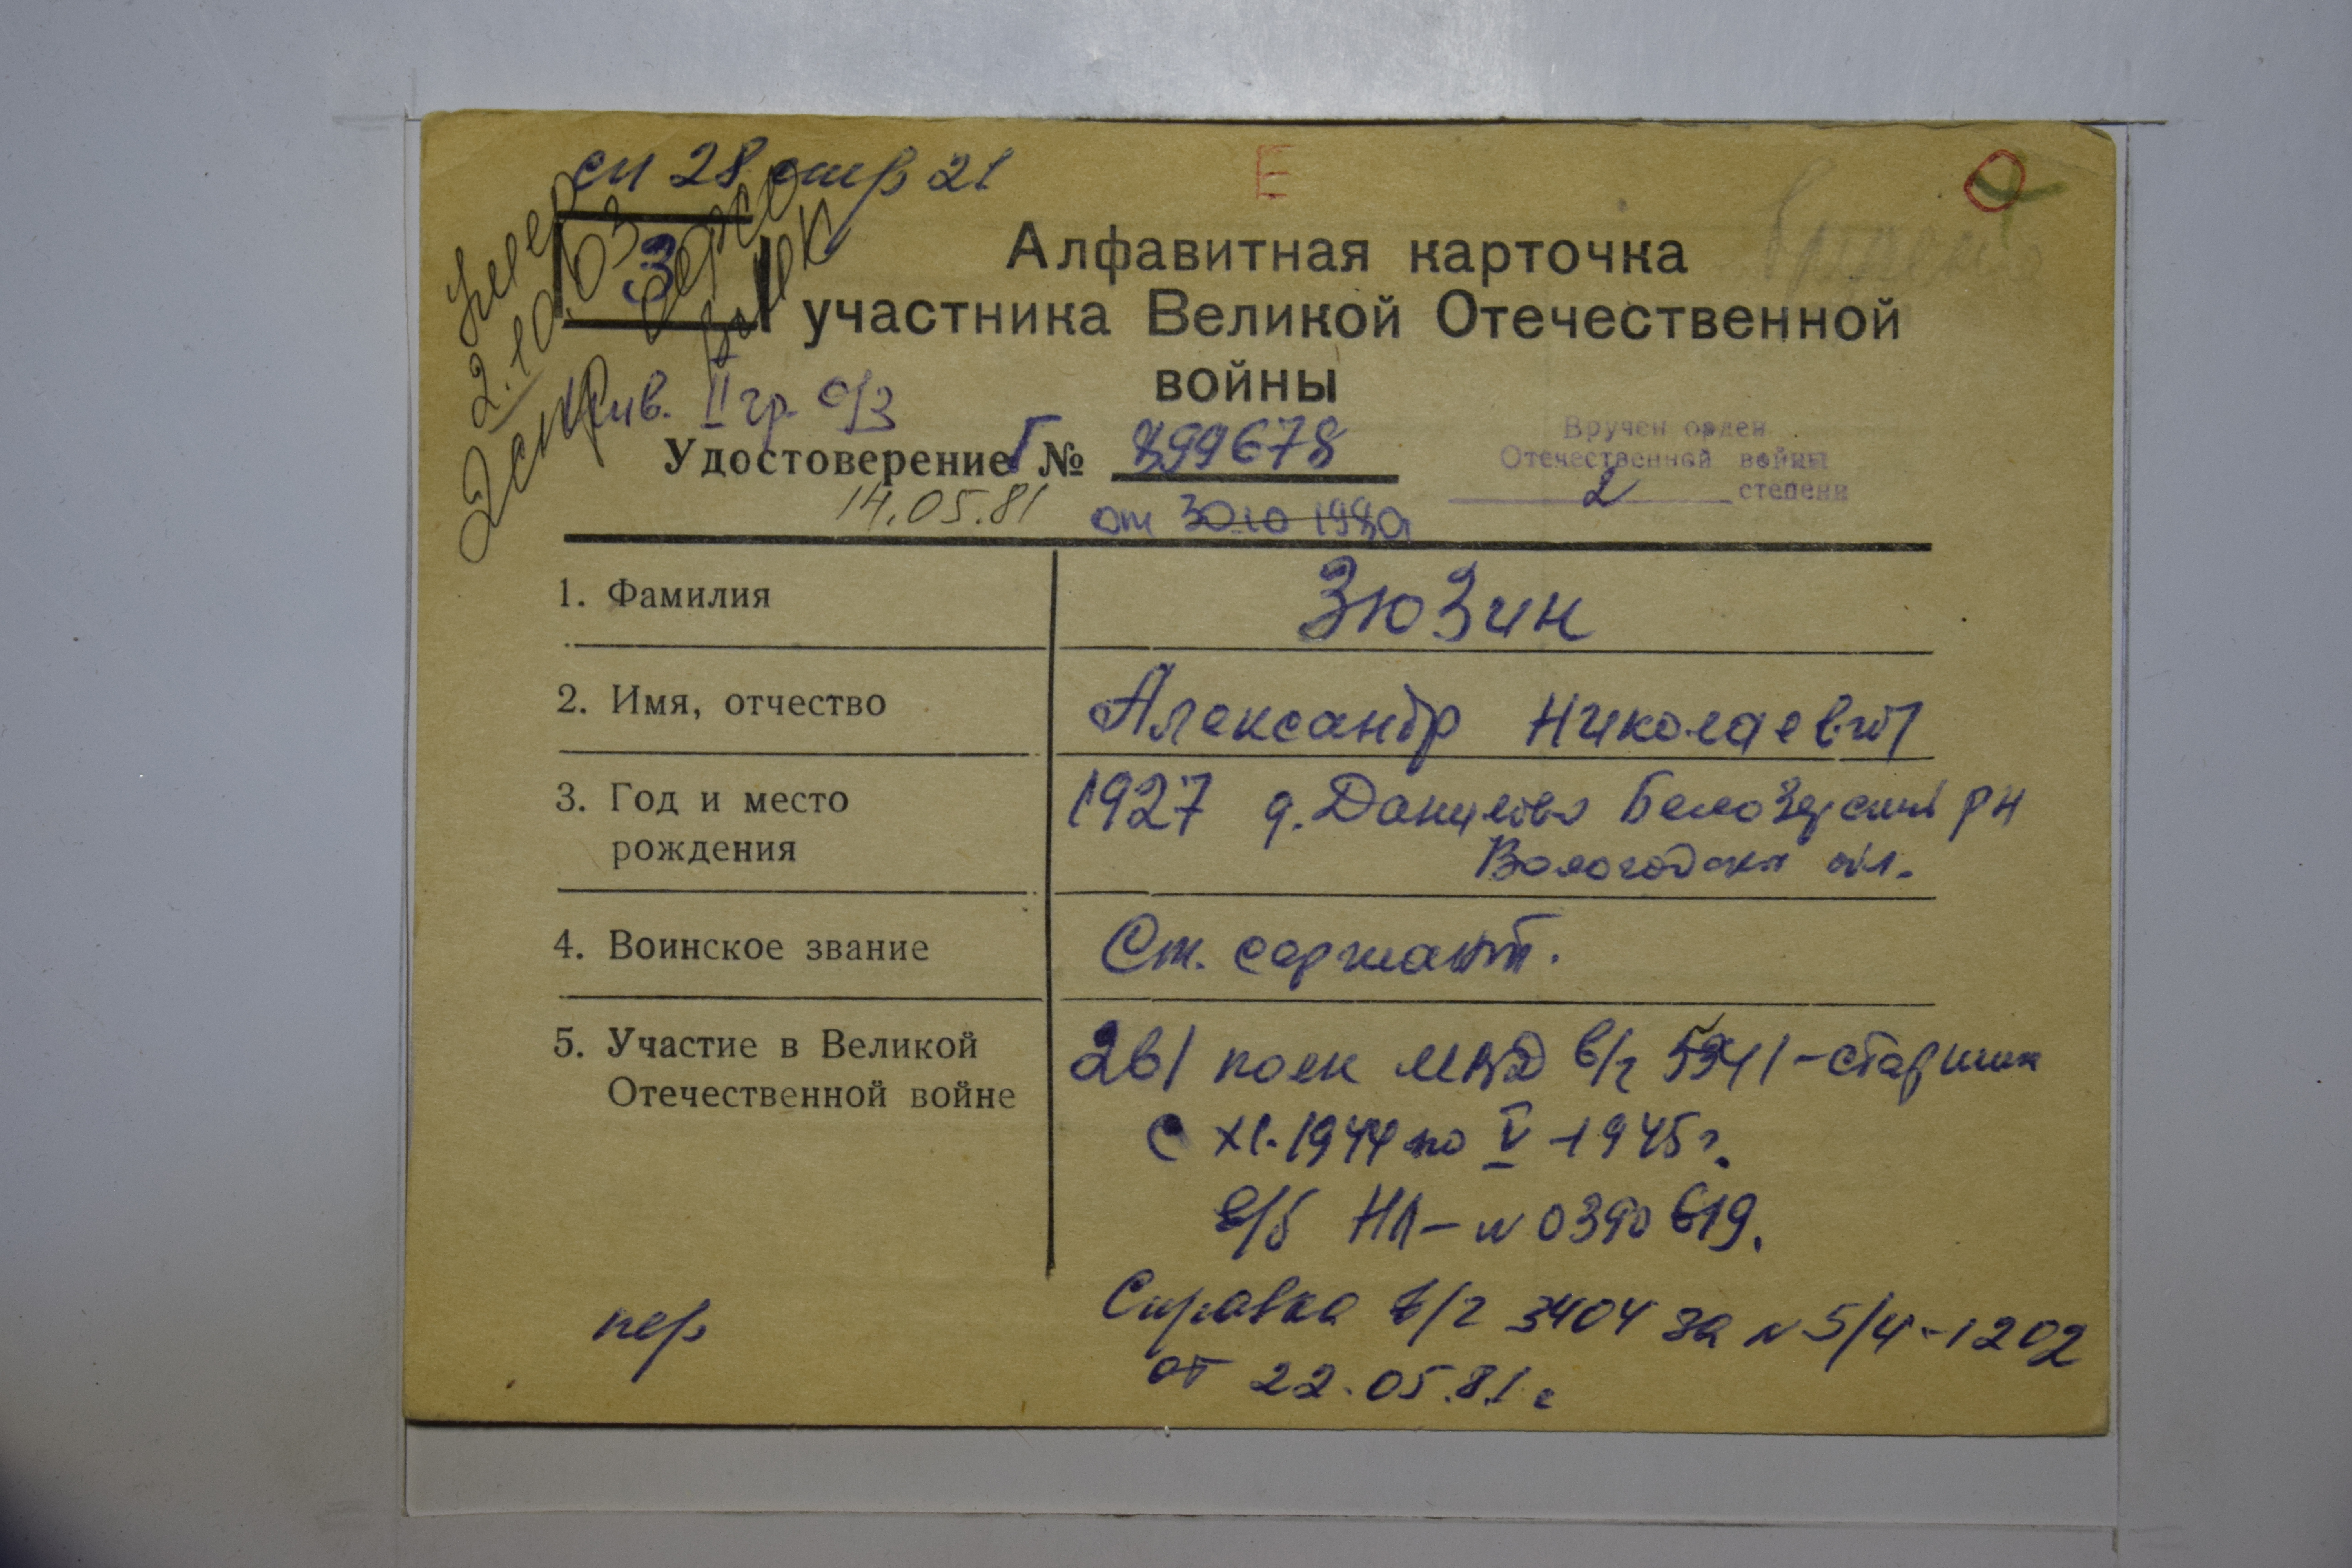 сп 28 стр 21
Е
З
Умер
2.10.03
Алфавитная карточка
участника Великой Отечественной
войны
инв. II гр. о/з
Удостоверение Г № 899678
14.05.81
от 30.10 1980
Вручен орден
Отечественной войны
2 степени
1. Фамилия
Зюзин
2. Имя, отчество
Александр Николаевич
3. Год и место
рождения
1927 д. Данилово Белозерский р н
Вологодская обл.
4. Воинское звание
Ст. сержант.
5. Участие в Великой
Отечественной войне
261 полк МВД в/ч
с XI.1944 по V-1945 г.
в/б НЛ-№ 0390619.
Справка в/ч 3404 за № 5/4-1202
от 22.05.81 г
пер